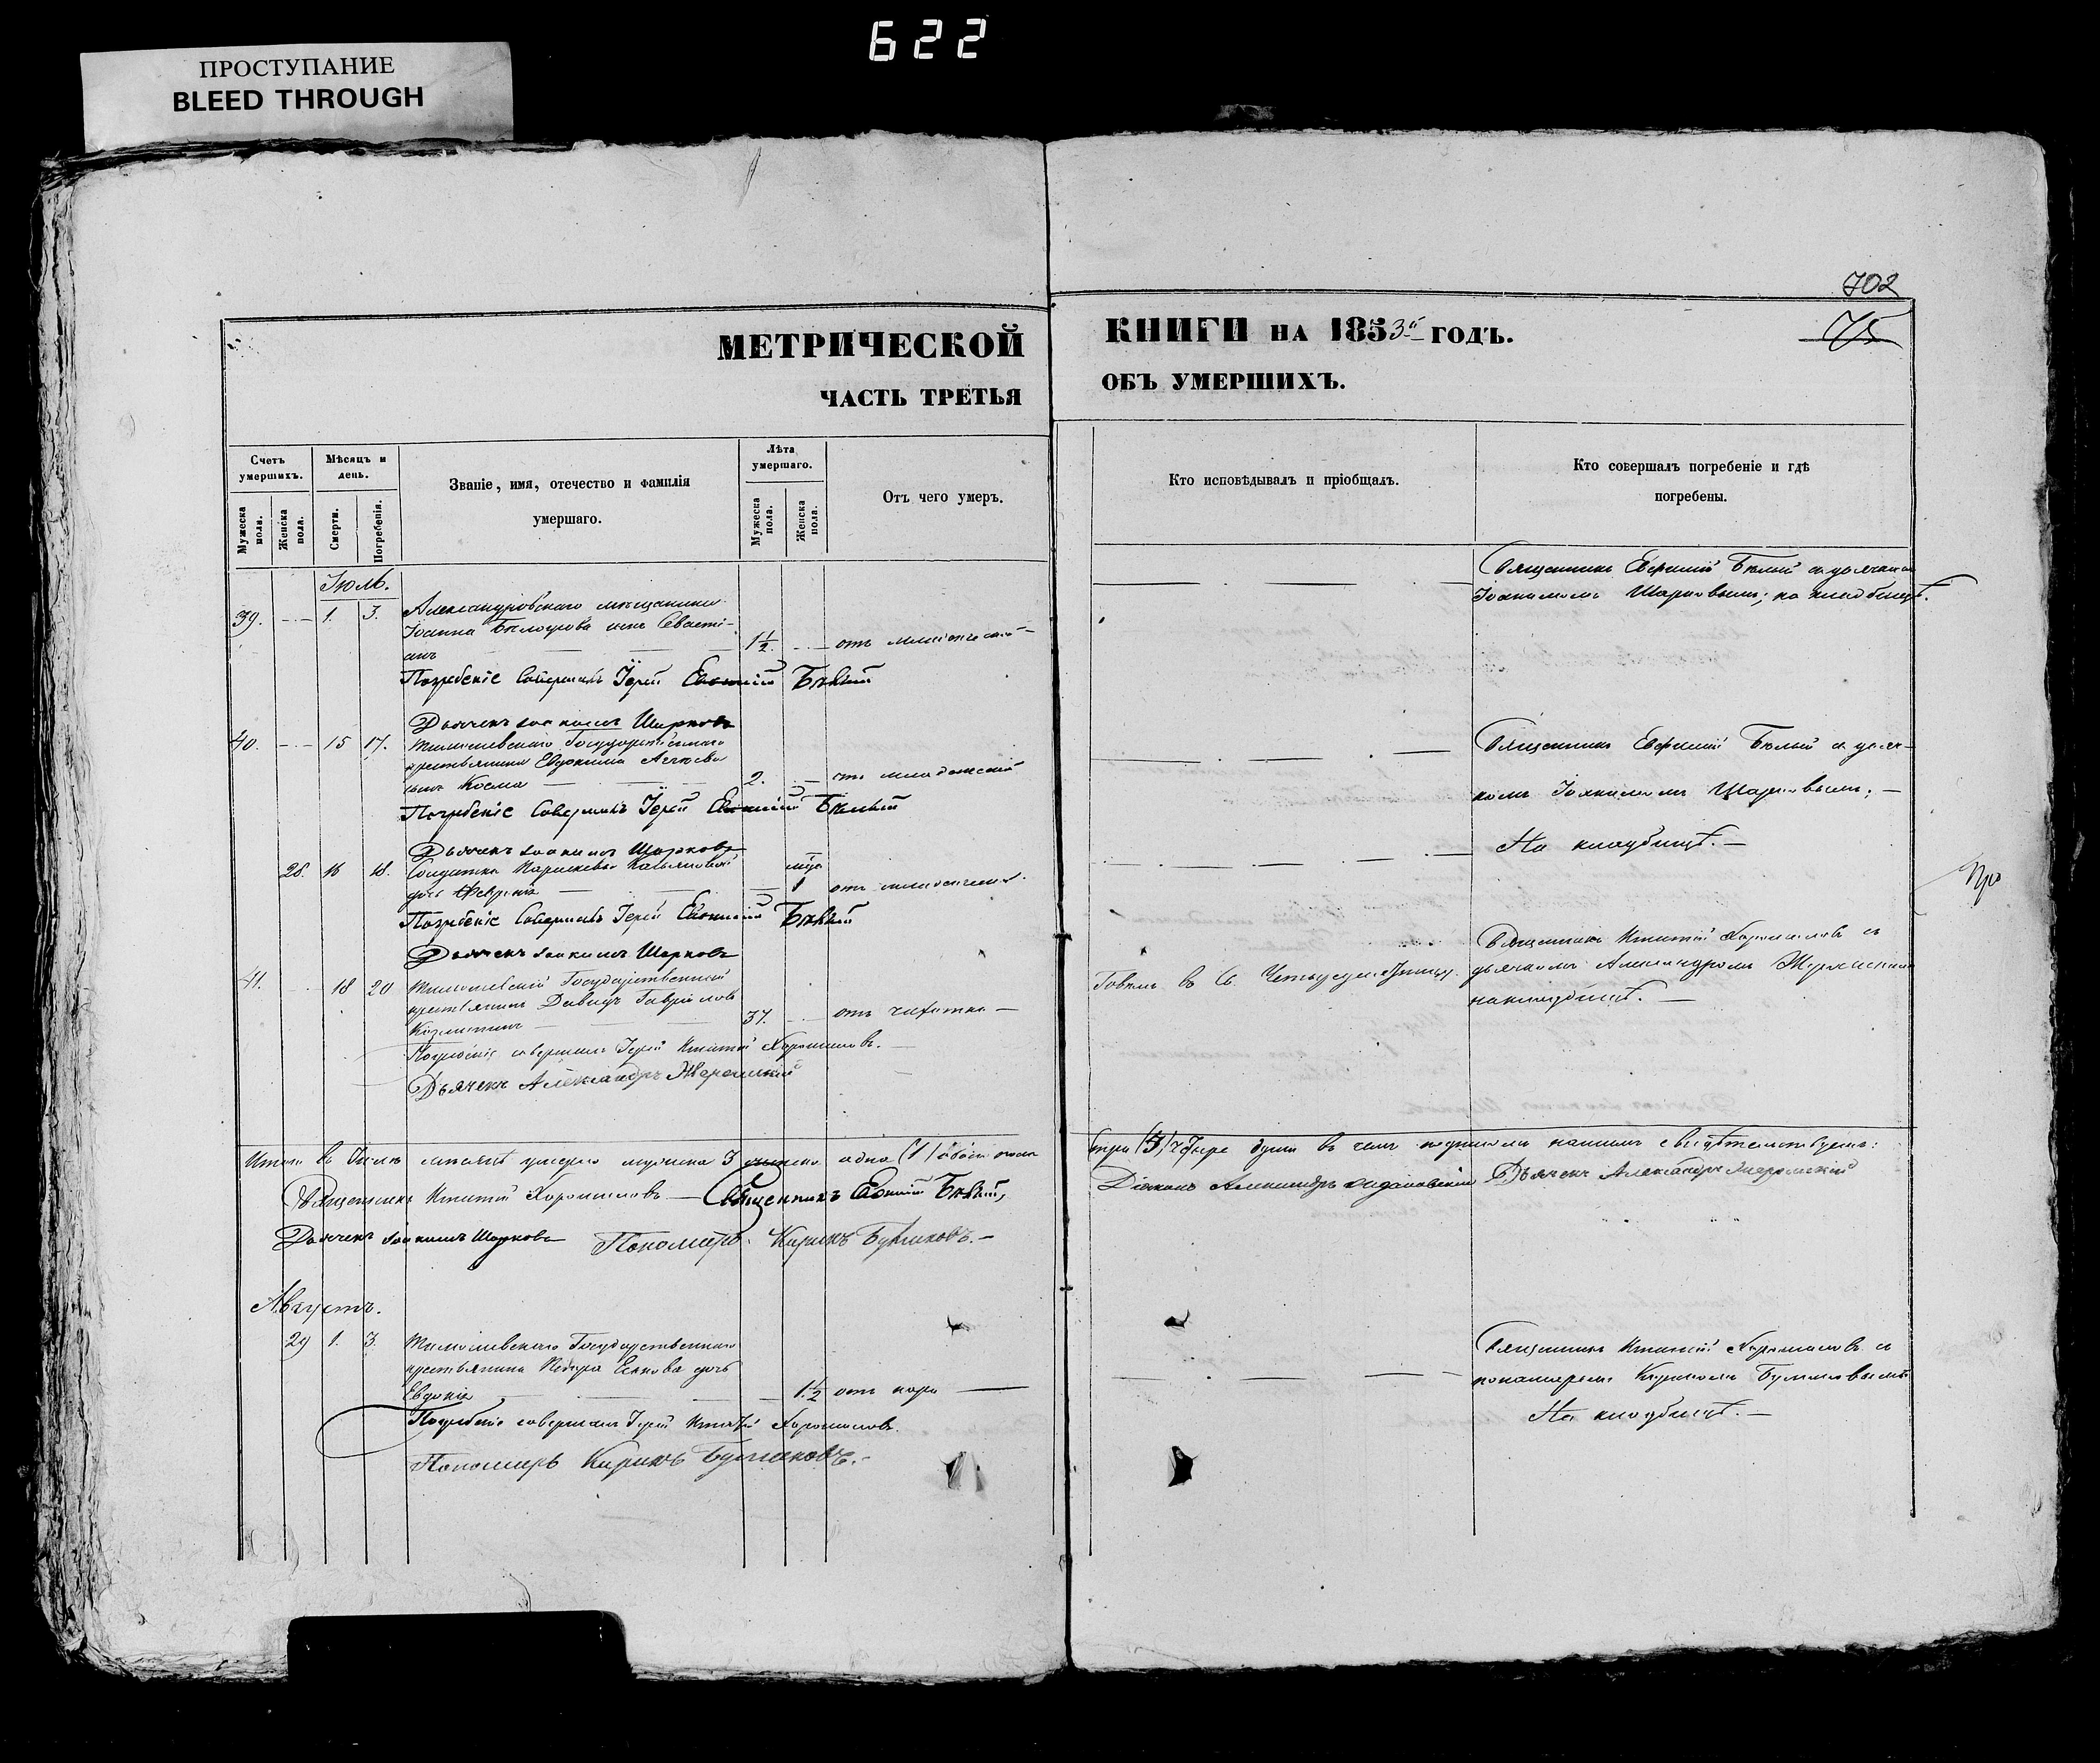 622
ПРОСТУПАНИЕ
BLEED THROUGH
702
75
МЕТРИЧЕСКОЙ КНИГИ НА 1853й ГОДЪ.
ЧАСТЬ ТРЕТЬЯ ОБЪ УМЕРШИХЪ.
Счетъ умершихъ.
Мужеска пола.
Женска пола.
Мѣсяцъ и день.
Смерти.
Погребенія.
Званіе, имя, отечество и фамилія
умершаго.
Лѣта умершаго.
Мужеска пола.
Женска пола.
Отъ чего умеръ.
Кто исповѣдывалъ и пріобщалъ.
Кто совершалъ погребеніе и гдѣ
погребены.
Іюль.
39. 1. 3. Александровскаго мѣщанина
Іоанна сынъ Севасті-
анъ 1½. отъ
Священникъ Евфимій Бѣлый съ дьячкомъ
Іоакимомъ Шарковымъ; на кладбищѣ.
Погребеніе Совершалъ Іерей Евфимій Бѣлый
Дьячекъ Іоакимъ Шарковъ
40. 15 17. Государственнаго
крестьянина Евдокима
сынъ Косма 2. отъ младенческой
Священникъ Евфимій Бѣлый съ дьяч-
комъ Іоакимомъ Шарковымъ;
На кладбищѣ.
Погребеніе Совершалъ Іерей Евфимій Бѣлый
Дьячекъ Іоакимъ Шарковъ
28. 16 18. Солдатки Параскевы
дочь Февронія 1 отъ младенческой
Погребеніе Совершалъ Іерей Евфимій Бѣлый
Дьячекъ Іоакимъ Шарковъ
41. 18 20 Государственный
крестьянинъ Давидъ Гавріиловъ
37. отъ чахотки
Говѣлъ въ Св. Четыредесятницу.
Священникъ Игнатій Хорошиловъ съ
дьячкомъ Александромъ
на кладбищѣ.
Погребеніе совершалъ Іерей Игнатій Хорошиловъ.
Дьячекъ Александръ
Итого въ Іюлѣ мѣсяцѣ умерло мужеска 3 женска одна (1) обоего пола
четыре души въ чемъ подписомъ нашимъ свидѣтельствуемъ:
Священникъ Игнатій Хорошиловъ Священникъ Евфимій Бѣлый,
Діаконъ Александръ Дьячекъ Александръ
Дьячекъ Іоакимъ Шарковъ Пономарь Кирикъ
Августъ.
29 1. 3. Государственнаго
крестьянина Петра дочь
Евдокія 1½ отъ кори
Священникъ Игнатій Хорошиловъ съ
пономаремъ Кирикомъ
На кладбищѣ.
Погребеніе совершалъ Іерей Игнатій Хорошиловъ.
Пономарь Кирикъ